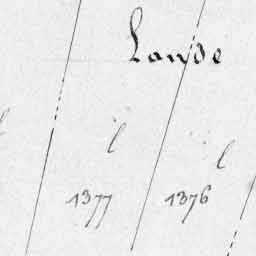 Lande
l l
1377 1376